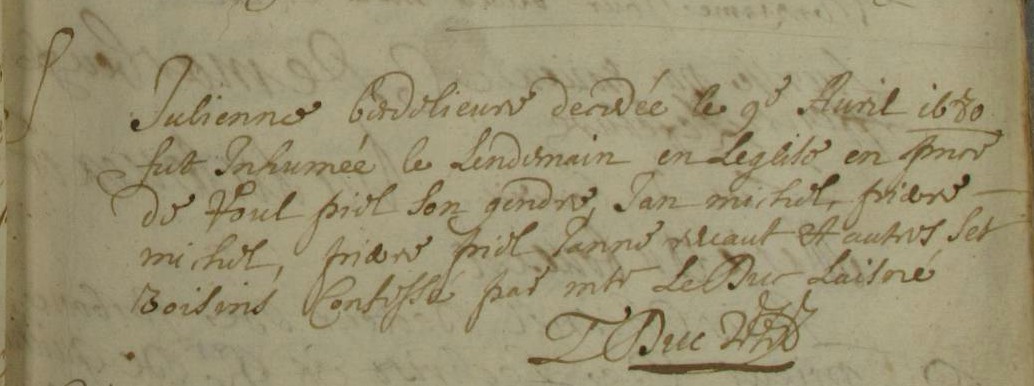 Julienne decedée le 9e Auril 1680
fut Inhumée le Lendemain en Leglise en pnce
de Poul piel son gendre, Jan michel, pierre
michel, pierre piel Janne et autres set
voisins Confesse par mre Le Duc Laisné
T Duc